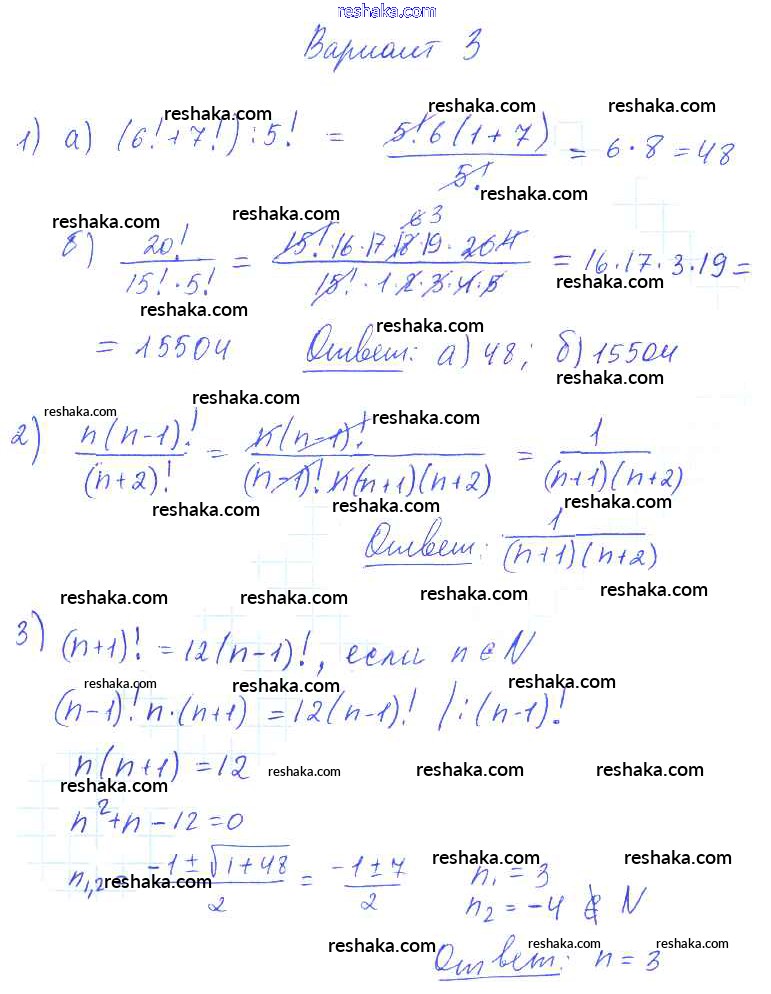 reshaka.com
Вариант 3
reshaka.com reshaka.com reshaka.com
1) а) (6! + 7!) : 5! = 5! 6 (1 + 7) / 5! = 6 · 8 = 48
reshaka.com reshaka.com reshaka.com
б) 20! / 15! · 5! = 15! · 16 · 17 · 18 · 19 · 20 4 / 15! · 1 · 2 · 3 · 4 · 5 = 16 · 17 · 3 · 19 =
6 3
reshaka.com reshaka.com reshaka.com
reshaka.com
= 15504 Ответ: а) 48; б) 15504
reshaka.com reshaka.com reshaka.com
2) n (n-1)! / (n+2)! = n (n-1)! / (n-1)! n (n+1)(n+2) = 1 / (n+1)(n+2)
reshaka.com reshaka.com reshaka.com
Ответ: 1 / (n+1)(n+2)
reshaka.com reshaka.com reshaka.com
3) (n+1)! = 12 (n-1)!, если n ∈ N
reshaka.com reshaka.com reshaka.com
(n-1)! n · (n+1) = 12 (n-1)! / : (n-1)!
n (n+1) = 12 reshaka.com reshaka.com reshaka.com
reshaka.com
n² + n - 12 = 0
reshaka.com reshaka.com
n₁,₂ = -1 ± √1+48 / 2 = -1 ± 7 / 2 n₁ = 3
reshaka.com
n₂ = -4 ∉ N
reshaka.com reshaka.com reshaka.com
Ответ: n = 3